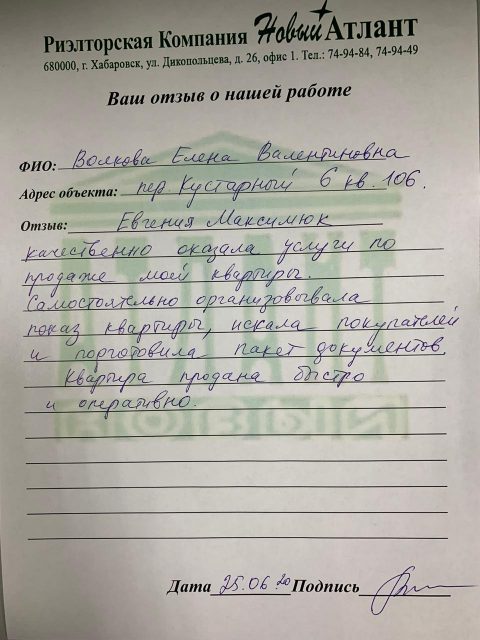 Риэлторская Компания Новый Атлант
680000, г. Хабаровск, ул. Дикопольцева, д. 26, офис 1. Тел.: 74-94-84, 74-94-49
Ваш отзыв о нашей работе
ФИО: Волкова Елена Валентиновна
Адрес объекта: пер. Кустарный 6 кв. 106.
Отзыв: Евгения Максимюк
качественно оказала услуги по
продаже моей квартиры.
Самостоятельно организовывала
показ квартиры, искала покупателей
и порготовила пакет документов.
Квартира продана быстро
и оперативно.
Дата 25.06.20 Подпись